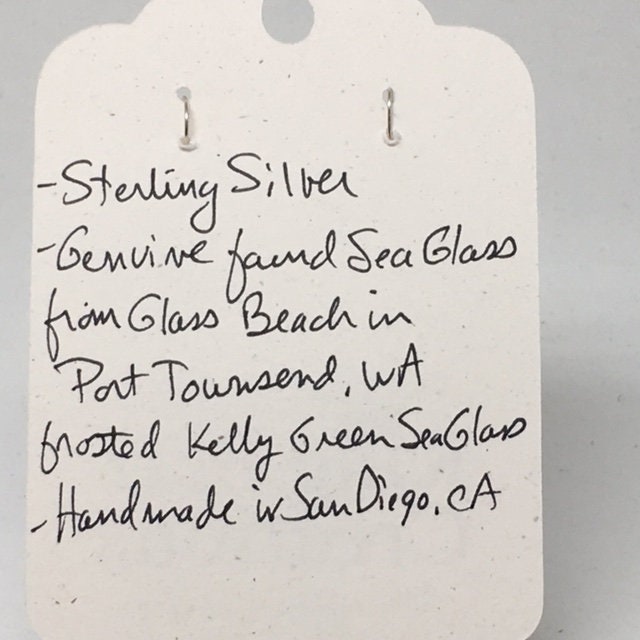 -Sterling Silver
-Genuine found Sea Glass
from Glass Beach in
Port Townsend, WA
frosted Kelly Green Sea Glass
-Handmade in San Diego, CA